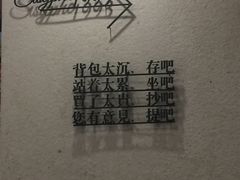 背包太沉，存吧
站着太累，坐吧
買了太貴，抄吧
您有意見，提吧